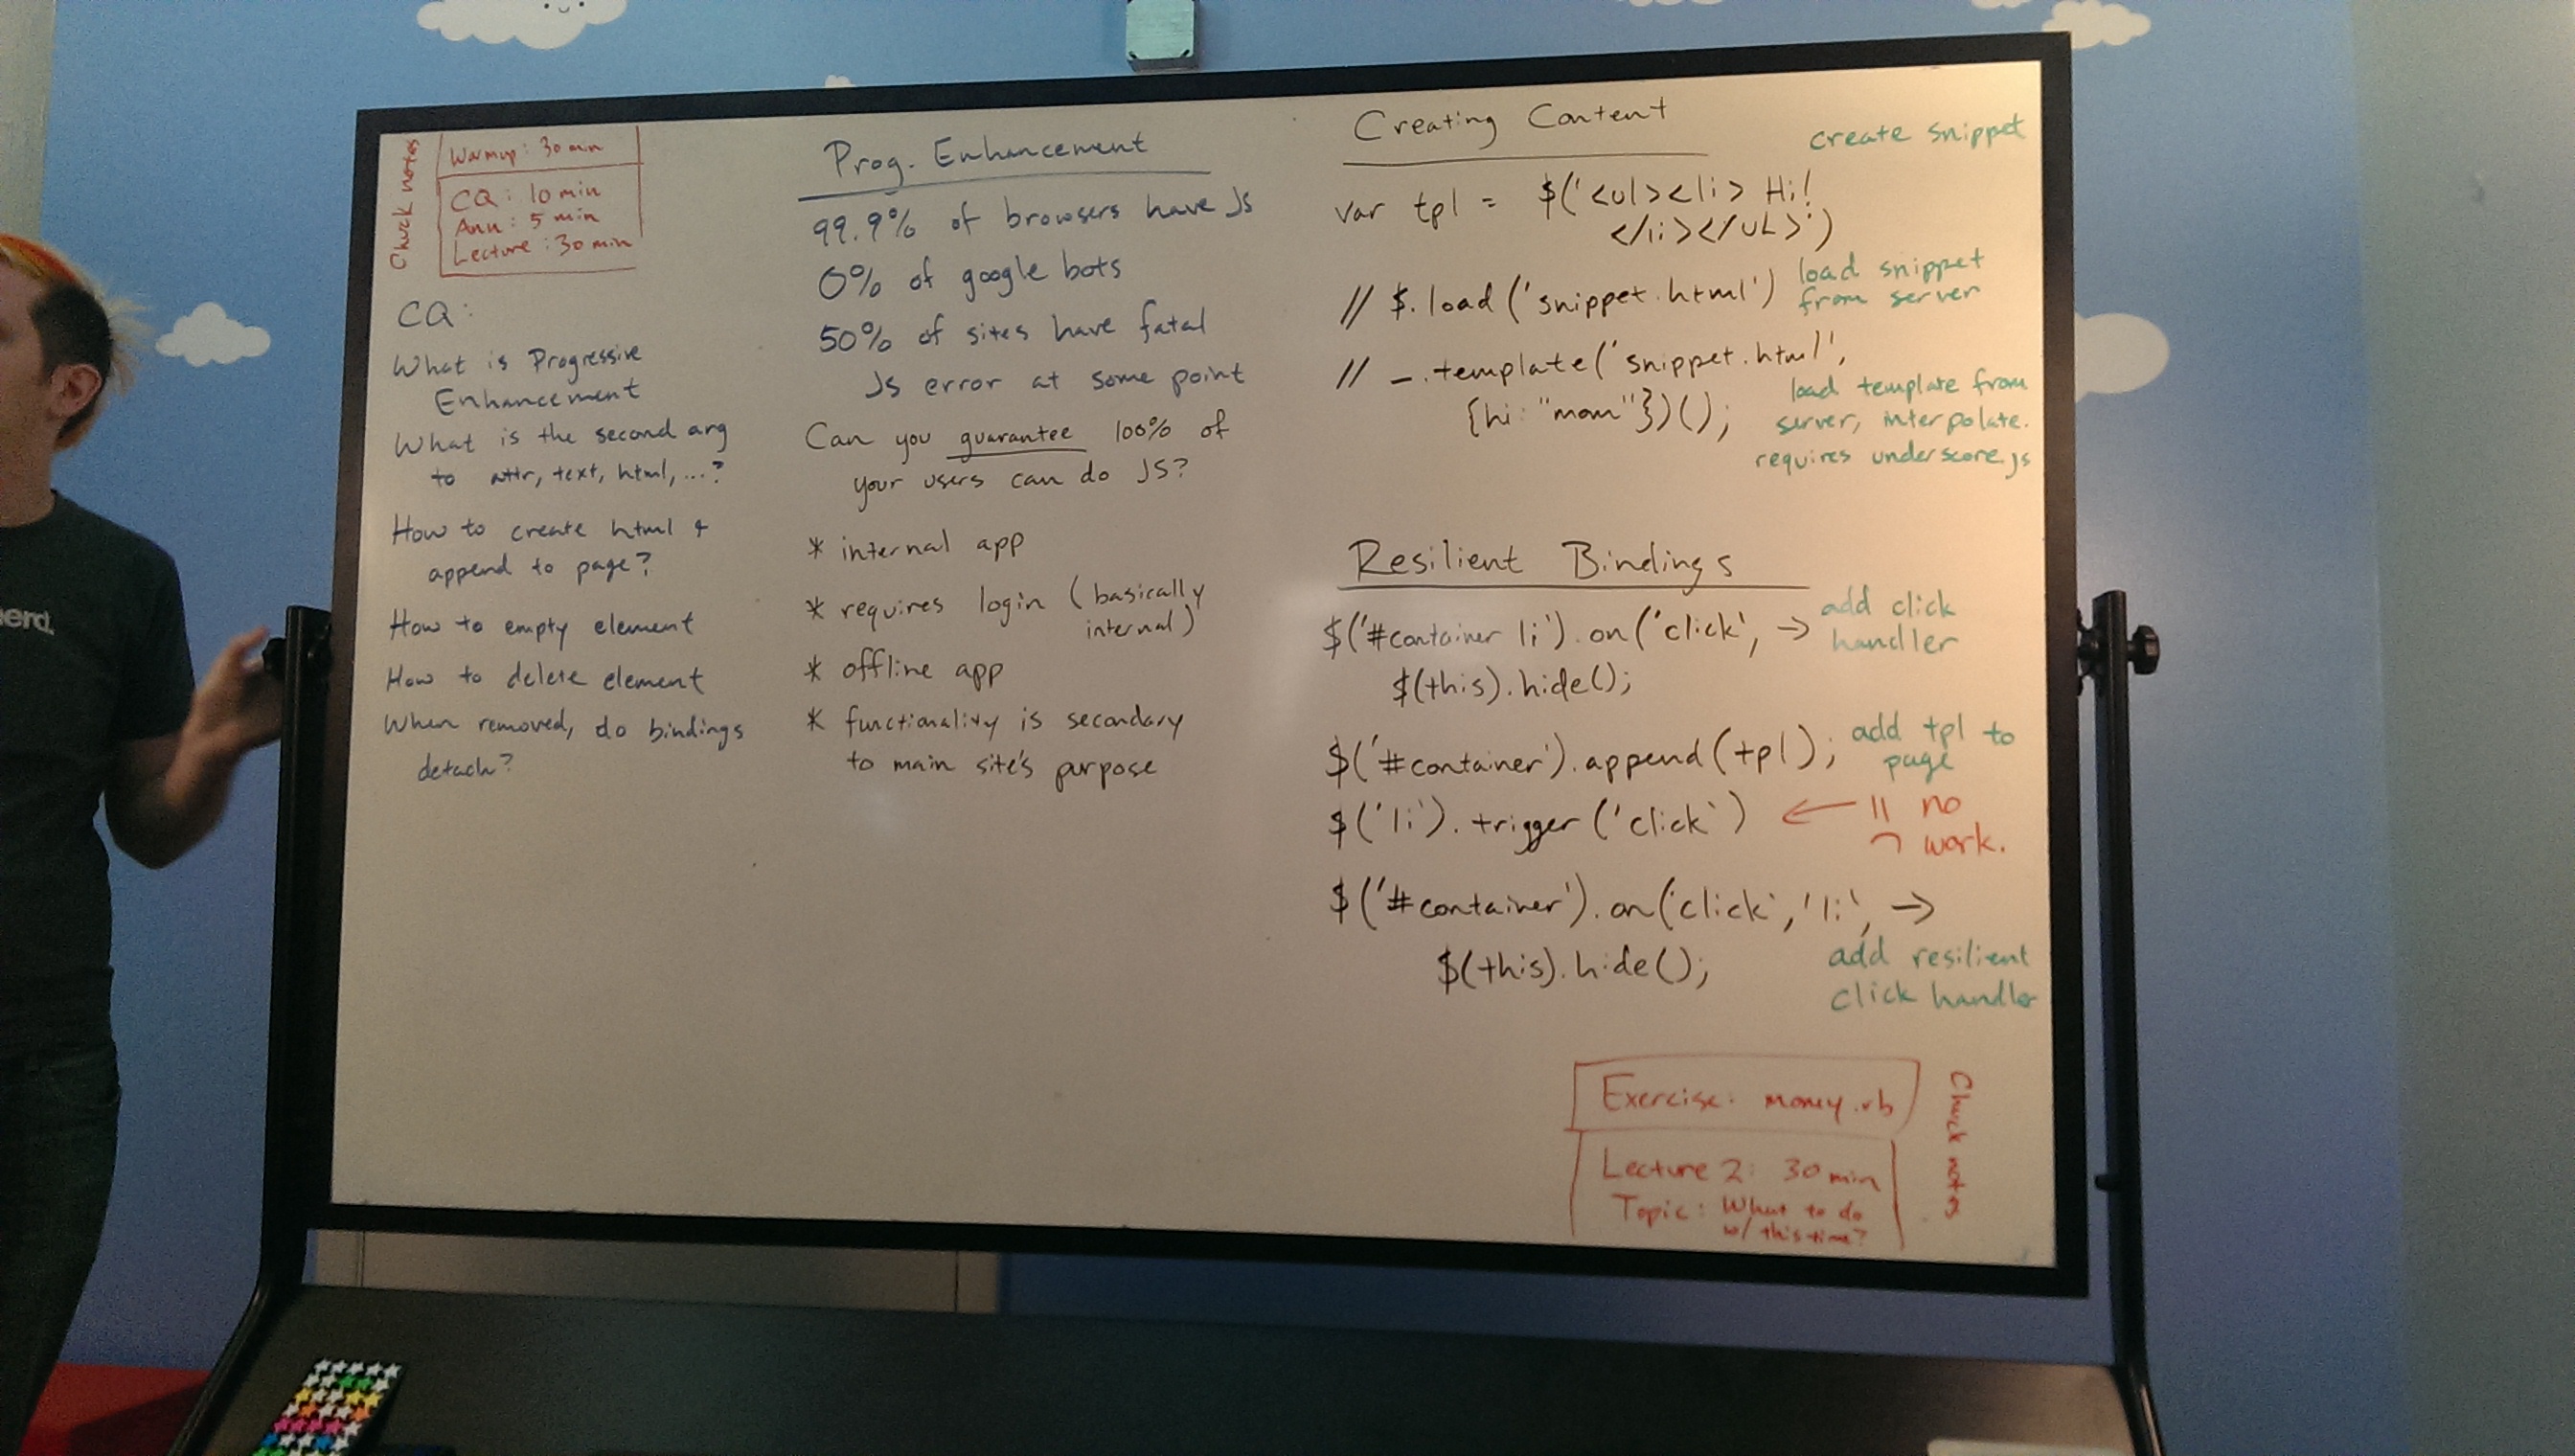 Chuck notes
Warmup: 30 min
CQ: 10 min
Ann: 5 min
Lecture: 30 min
CQ:
What is Progressive
Enhancement
What is the second arg
to attr, text, html, ...?
How to create html &
append to page?
How to empty element
How to delete element
When removed, do bindings
detach?
Prog. Enhancement
99.9% of browsers have Js
0% of google bots
50% of sites have fatal
Js error at some point
Can you guarantee 100% of
your users can do JS?
* internal app
* requires login (basically
internal)
* offline app
* functionality is secondary
to main site's purpose
Creating Content
create snippet
var tpl = $('<ul><li> Hi!
</li></UL>')
// $.load('snippet.html')
load snippet
from server
// _.template('snippet.html',
{hi: "mom"})();
load template from
server, interpolate.
requires underscore.js
Resilient Bindings
$('#container li').on('click', →
add click
handler
$(this).hide();
$('#container').append(tpl);
add tpl to
page
$('li').trigger('click')
← // no
work.
$('#container').on('click','li', →
$(this).hide();
add resilient
click handler
Exercise: money.rb
Lecture 2: 30 min
Topic: What to do
w/ this time?
Chuck notes
nerd.